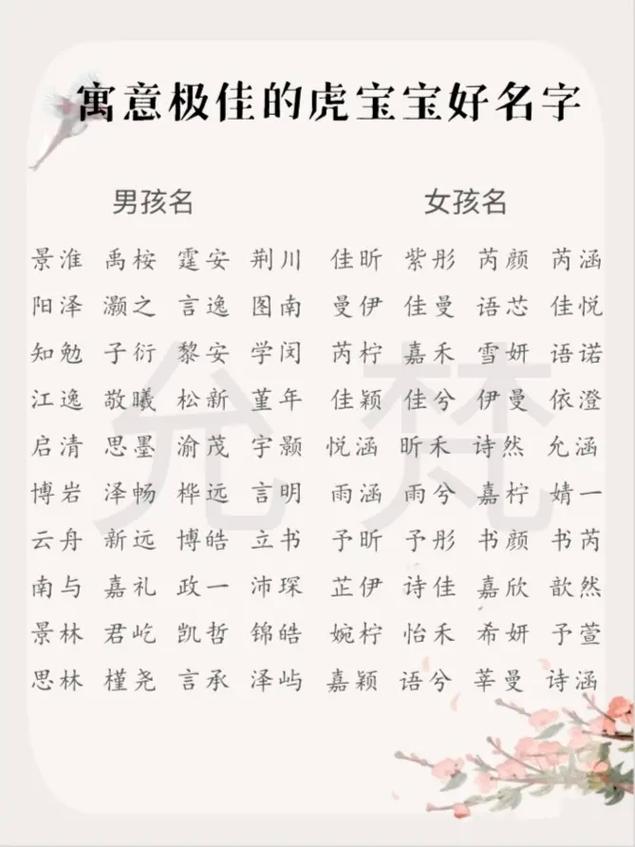 寓意极佳的虎宝宝好名字
男孩名 女孩名
景淮 禹桉 霆安 荆川 佳昕 紫彤 芮颜 芮涵
阳泽 灏之 言逸 图南 曼伊 佳曼 语芯 佳悦
知勉 子衍 黎安 学闵 芮柠 嘉禾 雪妍 语诺
江逸 敬曦 松新 堇年 佳颖 佳兮 伊曼 依澄
启清 思墨 渝茂 宇颢 悦涵 昕禾 诗然 允涵
博岩 泽畅 桦远 言明 雨涵 雨兮 嘉柠 婧一
云舟 新远 博皓 立书 予昕 予彤 书颜 书芮
南与 嘉礼 政一 沛琛 芷伊 诗佳 嘉欣 歆然
景林 君屹 凯哲 锦皓 婉柠 怡禾 希妍 予萱
思林 槿尧 言承 泽屿 嘉颖 语兮 莘曼 诗涵
允梵